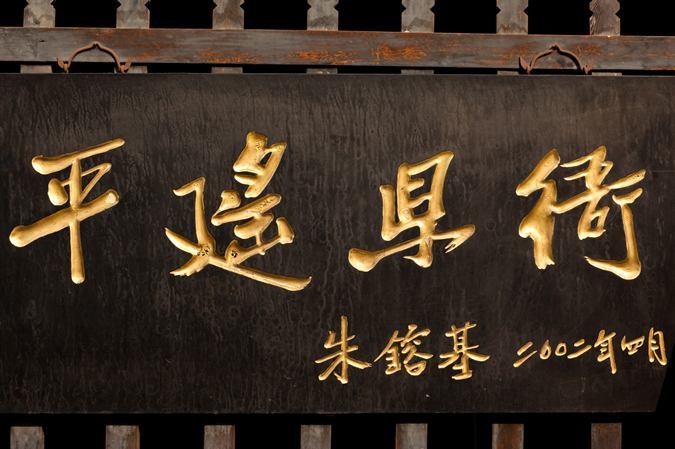 平遥县衙
朱鎔基 二〇〇二年四月